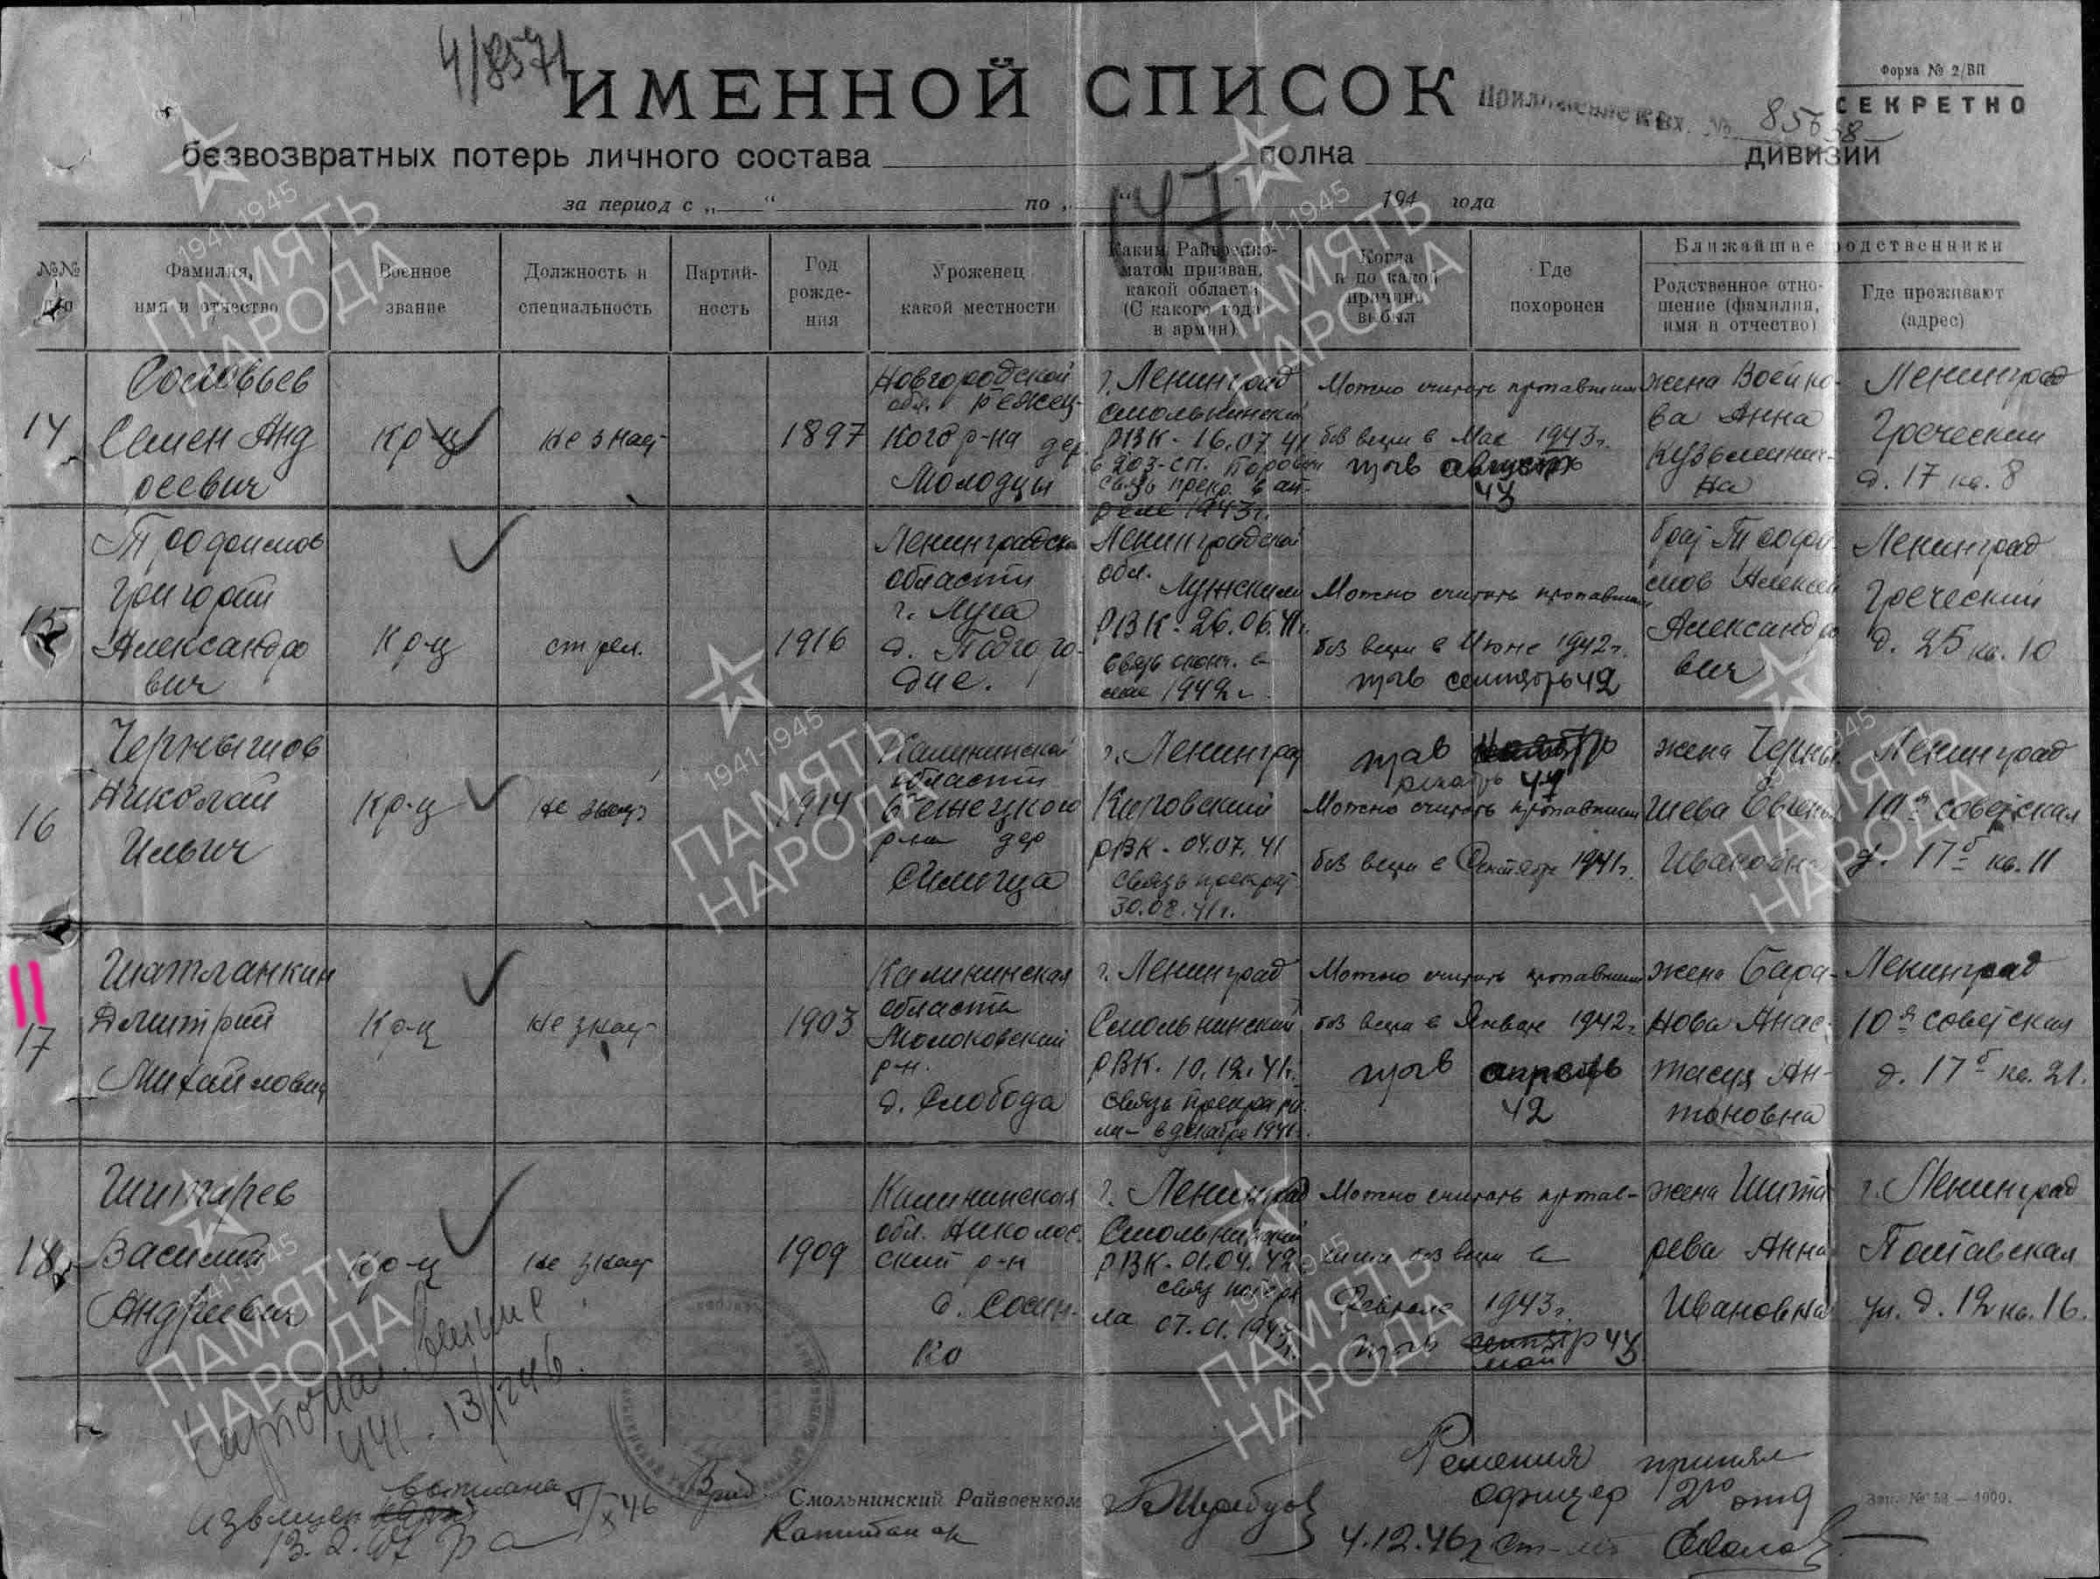 4/8571
ИМЕННОЙ СПИСОК
Форма № 2/ВП
СЕКРЕТНО
Приложение к вх. №
безвозвратных потерь личного состава полка дивизии
за период с „ “ по „ “ 194 года
147
№№ п/п
Фамилия, имя и отчество
Военное звание
Должность и специальность
Партий-
ность
Год рожде-
ния
Уроженец какой местности
Каким Райвоенко-
матом призван,
какой области
(С какого года
в армии)
Когда и по какой причине выбыл
Где похоронен
Ближайшие родственники
Родственное отно-
шение (фамилия,
имя и отчество)
Где проживают (адрес)
14
Соловьев
Семен Анд
реевич
кр-ц
не знает
1897
Новгородской
обл.
кого р-на дер.
Молодцы
г. Ленинград
Смольнинский
РВК - 16.07.41
в 203-сп.
связь прекр. в ап-
реле 1943г.
Можно считать пропавшим
без вести в Мае 1943г.
пр б/в август
43
жена Воейко-
ва Анна
Кузьминич-
на
Ленинград
Греческий
д. 17 кв. 8
15
Трофимов
Григорий
Александро
вич
кр-ц
стрел.
1916
Ленинградской
области
г. Луга
д. Подгоро-
дие.
Ленинградской
обл. Лужским
РВК - 26.06.41г.
связь
мае 1942г.
Можно считать пропавшим
без вести в Июне 1942г.
пр б/в сентябрь 42
брат Трофи-
мов Алексей
Александро
вич
Ленинград
Греческий
д. 25 кв. 10
16
Чернышов
Николай
Ильич
кр-ц
не знает
1914
Калининской
области
Бежецкого
р-на дер
г. Ленинград
Кировский
РВК - 04.07.41
связь прекрат
30.08.41г.
пр б/в
декабрь 44
Можно считать пропавшим
без вести в Сентябре 1941г.
жена Черны-
шева Евгения
Ивановна
Ленинград
10я советская
д. 17б кв. 11
17
Шатланкин
Дмитрий
Михайлович
кр-ц
не знает
1903
Калининская
область
Молоковский
р-н.
д. Слобода
г. Ленинград
Смольнинский
РВК. 10.12.41г.
связь прекрати
ла- в декабре 1941г.
Можно считать пропавшим
без вести в Январе 1942г.
пр б/в апрель
42
жена Бара-
нова Анас-
тасия Ан-
тоновна
Ленинград
10я советская
д. 17б кв. 21.
18
Шитарев
Василий
Андреевич
кр-ц
не знает
1909
Калининская
обл.
ский р-н
д. Сосен-
ко
г. Ленинград
Смольнинский
РВК - 01.04.42
связ
ла 07.01.1943г.
Можно считать пропав-
шим без вести в
Феврале 1943г.
пр б/в
май 43
жена Шита
рева Анна
Ивановна
г. Ленинград
Полтавская
ул. д. 12 кв. 16.
выслана
13.2.47
Врид Смольнинский Райвоенком
Капитан
Решения принял
офицер 2го отд
4.12.46г ст-лт
Зак. № 53 — 4000.
1941-1945
ПАМЯТЬ
НАРОДА
1941-1945
ПАМЯТЬ
НАРОДА
1941-1945
ПАМЯТЬ
НАРОДА
1941-1945
ПАМЯТЬ
НАРОДА
1941-1945
ПАМЯТЬ
НАРОДА
1941-1945
ПАМЯТЬ
НАРОДА